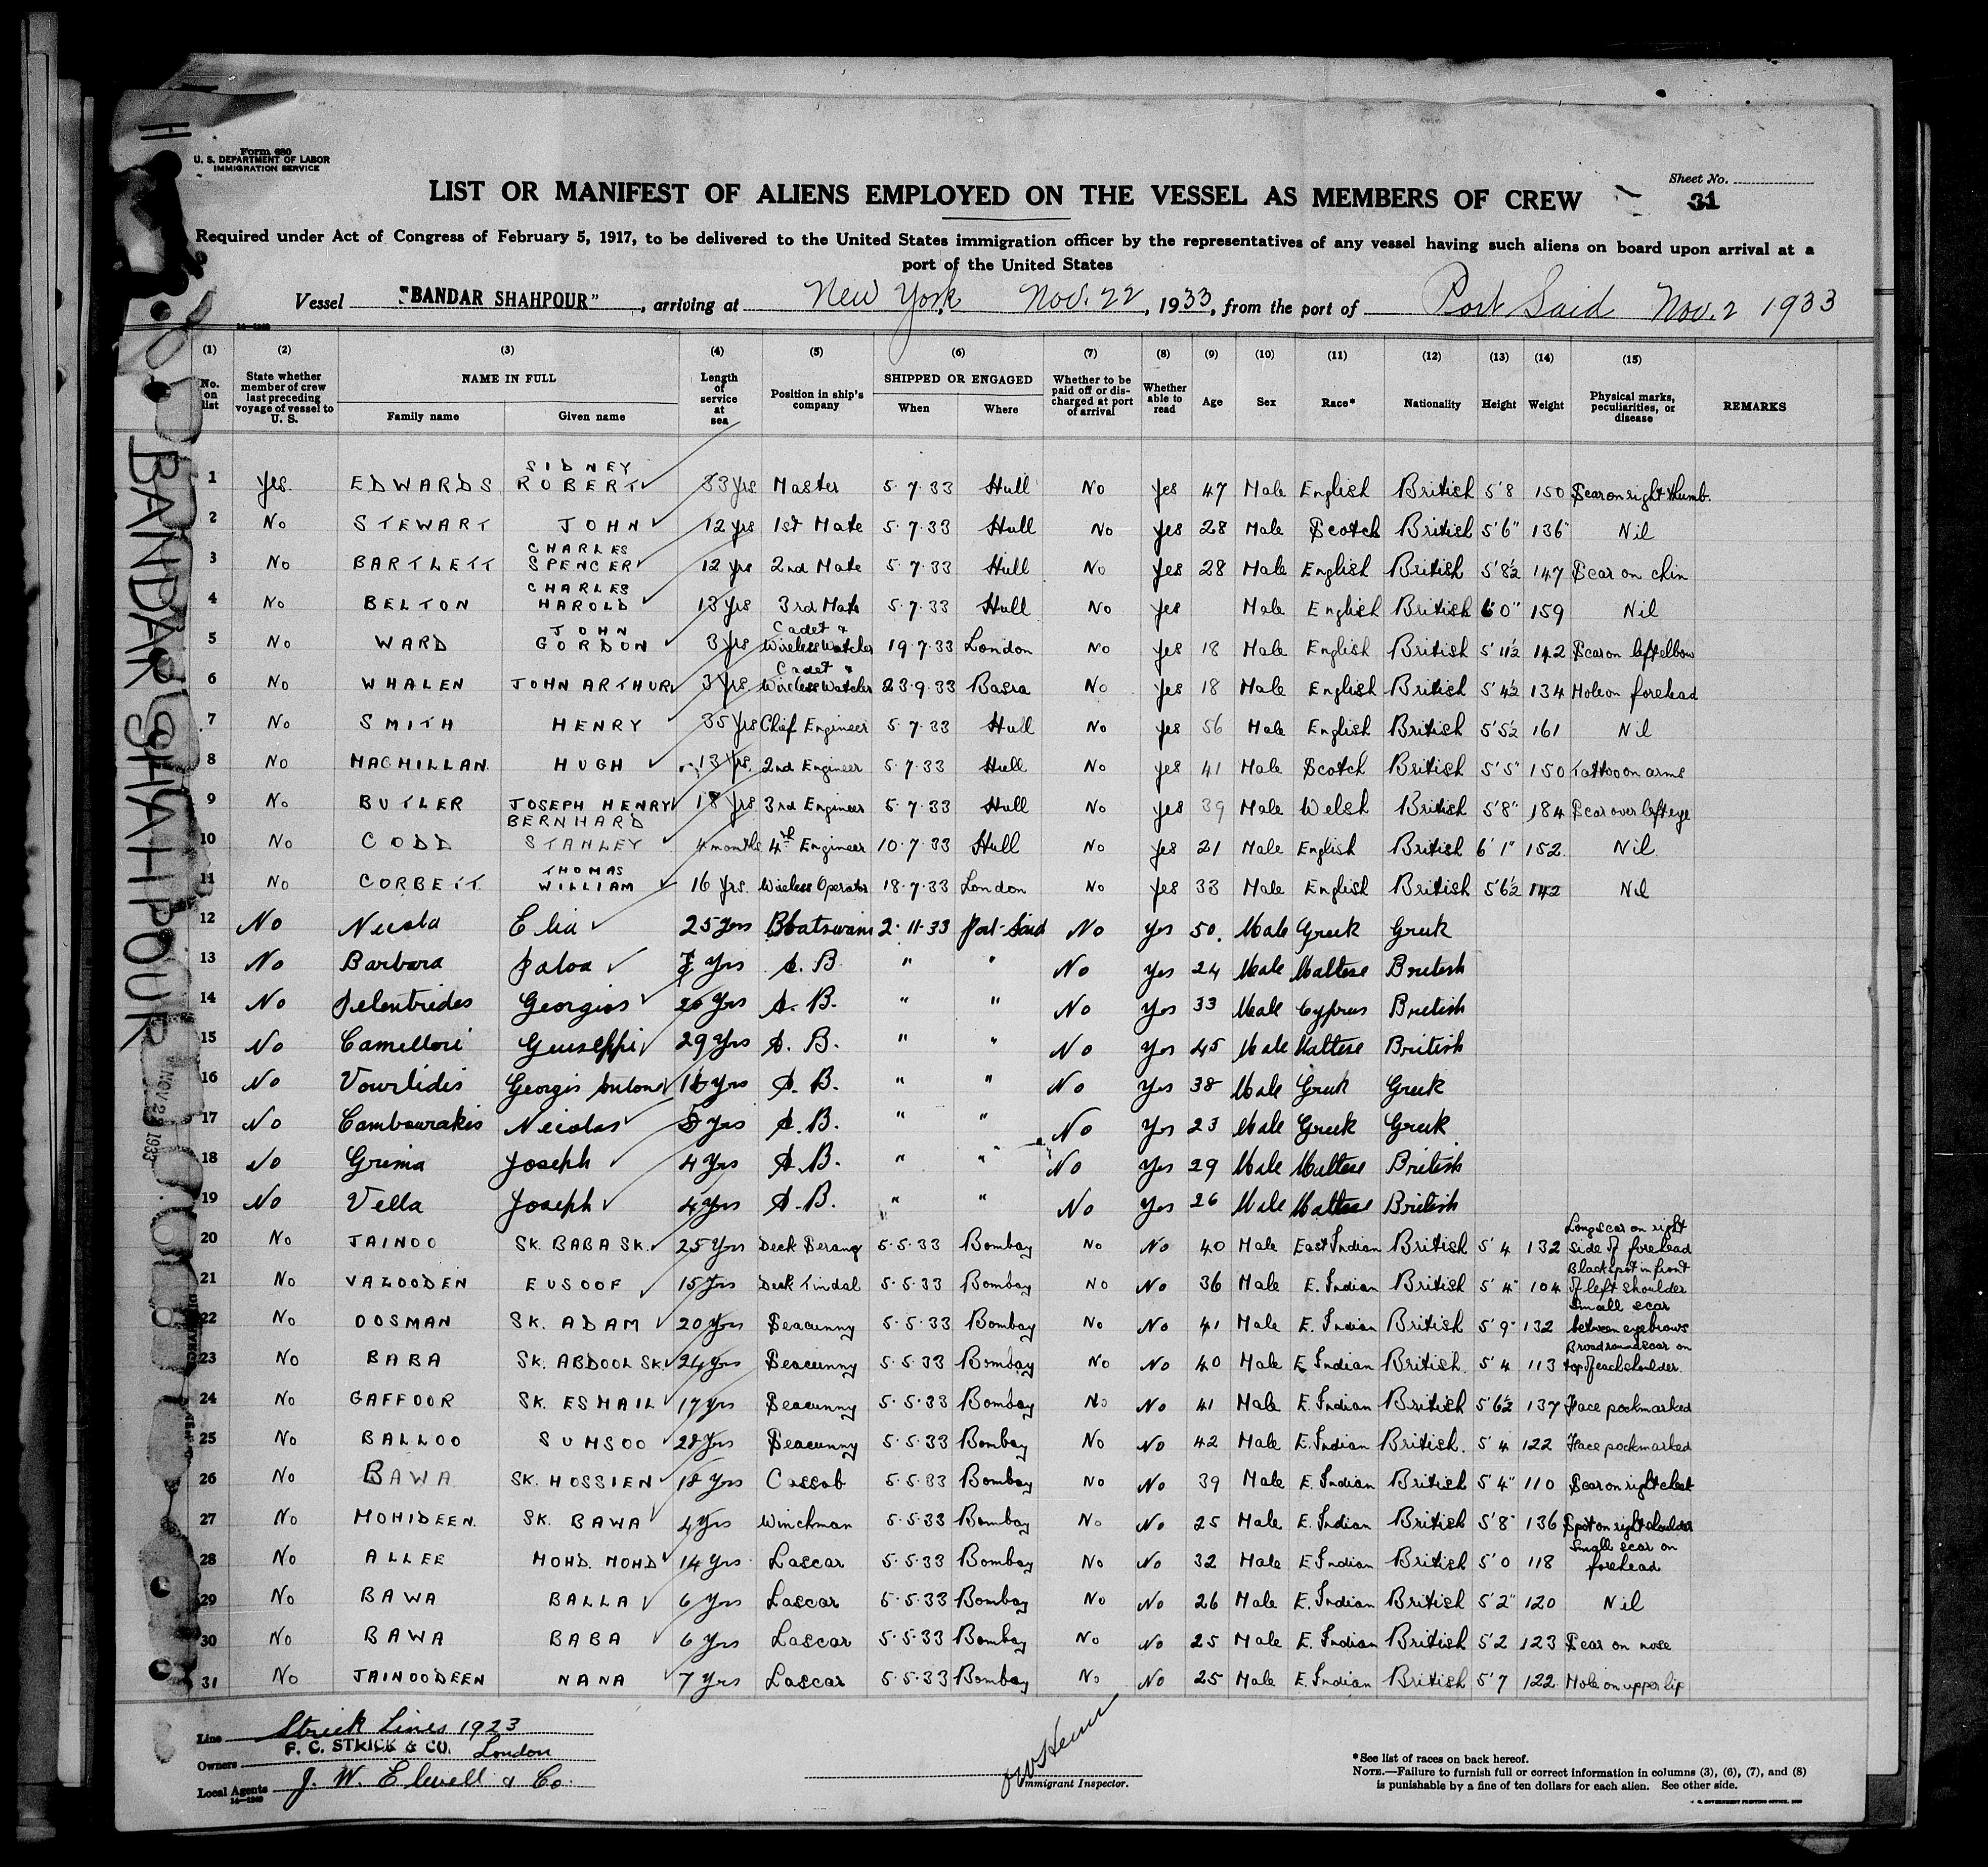 Form 680
U. S. DEPARTMENT OF LABOR
IMMIGRATION SERVICE
Sheet No.
31
LIST OR MANIFEST OF ALIENS EMPLOYED ON THE VESSEL AS MEMBERS OF CREW
Required under Act of Congress of February 5, 1917, to be delivered to the United States immigration officer by the representatives of any vessel having such aliens on board upon arrival at a
port of the United States
Vessel "BANDAR SHAHPOUR", arriving at New York, Nov. 22, 1933, from the port of Port Said Nov. 2 1933
(1) (2) (3) (4) (5) (6) (7) (8) (9) (10) (11) (12) (13) (14) (15)
No. on list State whether member of crew last preceding voyage of vessel to U. S. NAME IN FULL Family name Given name Length of service at sea Position in ship's company SHIPPED OR ENGAGED When Where Whether to be paid off or discharged at port of arrival Whether able to read Age Sex Race* Nationality Height Weight Physical marks, peculiarities, or disease REMARKS
1 Yes EDWARDS SIDNEY ROBERT 33 yrs Master 5.7.33 Hull No Yes 47 Male English British 5'8 150 Scar on right thumb.
2 No STEWART JOHN 12 yrs 1st Mate 5.7.33 Hull No Yes 28 Male Scotch British 5'6" 136 Nil
3 No BARTLETT CHARLES SPENCER 12 yrs 2nd Mate 5.7.33 Hull No Yes 28 Male English British 5'8½ 147 Scar on chin
4 No BELTON CHARLES HAROLD 13 yrs 3rd Mate 5.7.33 Hull No Yes Male English British 6'0" 159 Nil
5 No WARD JOHN GORDON 3 yrs Cadet & Wireless Watcher 19.7.33 London No Yes 18 Male English British 5'11½ 142 Scar on left elbow
6 No WHALEN JOHN ARTHUR 3 yrs Cadet & Wireless Watcher 23.9.33 Basra No Yes 18 Male English British 5'4½ 134 Mole on forehead
7 No SMITH HENRY 35 yrs Chief Engineer 5.7.33 Hull No Yes 56 Male English British 5'5½ 161 Nil
8 No MACMILLAN HUGH 13 yrs. 2nd Engineer 5.7.33 Hull No Yes 41 Male Scotch British 5'5" 150 Tattoo on arms
9 No BUTLER JOSEPH HENRY 18 yrs 3rd Engineer 5.7.33 Hull No Yes 39 Male Welsh British 5'8" 184 Scar over left eye
10 No CODD BERNHARD STANLEY 4 months 4th Engineer 10.7.33 Hull No Yes 21 Male English British 6'1" 152 Nil
11 No CORBETT THOMAS WILLIAM 16 yrs. Wireless Operator 18.7.33 London No Yes 33 Male English British 5'6½ 142 Nil
12 No Elia 25 yrs 2.11.33 Port-Said No Yes 50. Male Greek Greek
13 No Barbara yrs A. B. " " No Yes 24 Male Maltese British
14 No Georgios yrs A. B. " " No Yes 33 Male Cyprus British
15 No Camelleri Guiseppi 29 yrs A. B. " " No Yes 45 Male Maltese British
16 No Vourlidis Georgis yrs A. B. " " No Yes 38 Male Greek Greek
17 No Cambourakis Nicolas yrs A. B. " " No Yes 23 Male Greek Greek
18 No Grima Joseph 4 yrs A. B. " " No Yes 29 Male Maltese British
19 No Vella Joseph 4 yrs A. B. " " No Yes 26 Male Maltese British
20 No JAINOO SK. BABA SK. 25 yrs Deck Serang 5.5.33 Bombay No No 40 Male East Indian British 5'4 132 Long scar on right side of forehead
21 No VAZOODEN EUSOOF 15 yrs Deck Tindal 5.5.33 Bombay No No 36 Male E. Indian British 5'4" 104 Black spot in front of left shoulder
22 No OOSMAN SK. ADAM 20 yrs Seacunny 5.5.33 Bombay No No 41 Male E. Indian British 5'9" 132 Small scar between eyebrows
23 No BABA SK. ABDOOL SK. 24 yrs Seacunny 5.5.33 Bombay No No 40 Male E. Indian British 5'4 113 Broad round scar on top of each shoulder.
24 No GAFFOOR SK. ESMAIL 17 yrs Seacunny 5.5.33 Bombay No No 41 Male E. Indian British 5'6½ 137 Face pockmarked
25 No BALLOO SUMSOO 28 yrs Seacunny 5.5.33 Bombay No No 42 Male E. Indian British. 5'4 122 Face pockmarked
26 No BAWA SK. HOSSIEN 18 yrs Cassab 5.5.33 Bombay No No 39 Male E. Indian British 5'4" 110 Scar on right cheek
27 No MOHIDEEN. SK. BAWA 4 yrs Winchman 5.5.33 Bombay No No 25 Male E. Indian British 5'8" 136 Spot on right shoulder
28 No ALLEE MOHD. MOHD 14 yrs Lascar 5.5.33 Bombay No No 32 Male E. Indian British 5'0 118 Small scar on forehead
29 No BAWA BALLA 6 yrs Lascar 5.5.33 Bombay No No 26 Male E. Indian British 5'2" 120 Nil
30 No BAWA BABA 6 yrs Lascar 5.5.33 Bombay No No 25 Male E. Indian British 5'2 123 Scar on nose
31 No JAINOODEEN NANA 7 yrs Lascar 5.5.33 Bombay No No 25 Male E. Indian British 5'7 122 Mole on upper lip
Line Strick Lines 1923
Owners F. C. STRICK & CO. London
Local Agents J. W. Elwell & Co.
14—1240
Immigrant Inspector.
*See list of races on back hereof.
NOTE.—Failure to furnish full or correct information in columns (3), (6), (7), and (8)
is punishable by a fine of ten dollars for each alien. See other side.
BANDAR SHAHPOUR